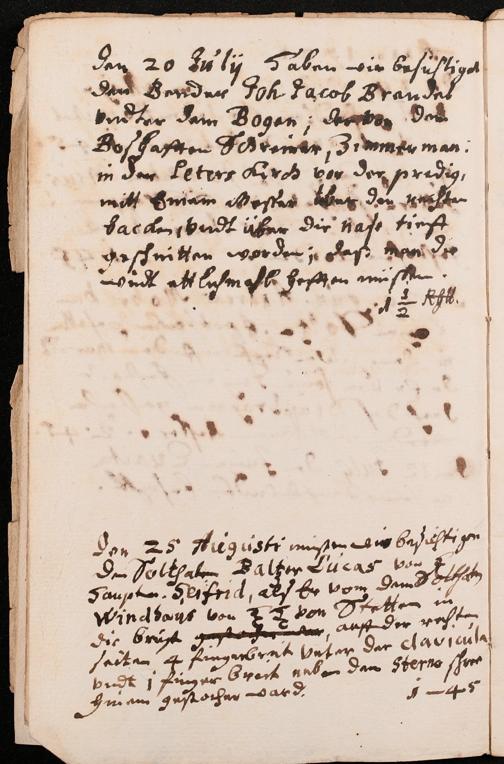 Den 20 July haben wir besichtiget
den Bender Joh Jacob Brandel
vndter dem Bogen; der von dem
Boshafften Schreiner, Zimmerman:
in der Peters Kirch vor der predig,
mitt Einem Messer über den rechten
backen, vndt über die nase tieff
geschnitten worden; daß man die
wundt ettlichmahl hefften müssen.
1/2 Rth.
Den 25 Augusti müsten wir besichtigen
den Solthaten Baltzer Lucas von
Hauptm. Seifrid, als Er vom dem Solthaten
Windhaus von von Stetten in
die brust auff der rechten
seiten 4 fingerbreit vnter der clavicula
vndt 1 finger breit neben dem Sterno
Einem gestochen ward. 1 - 45